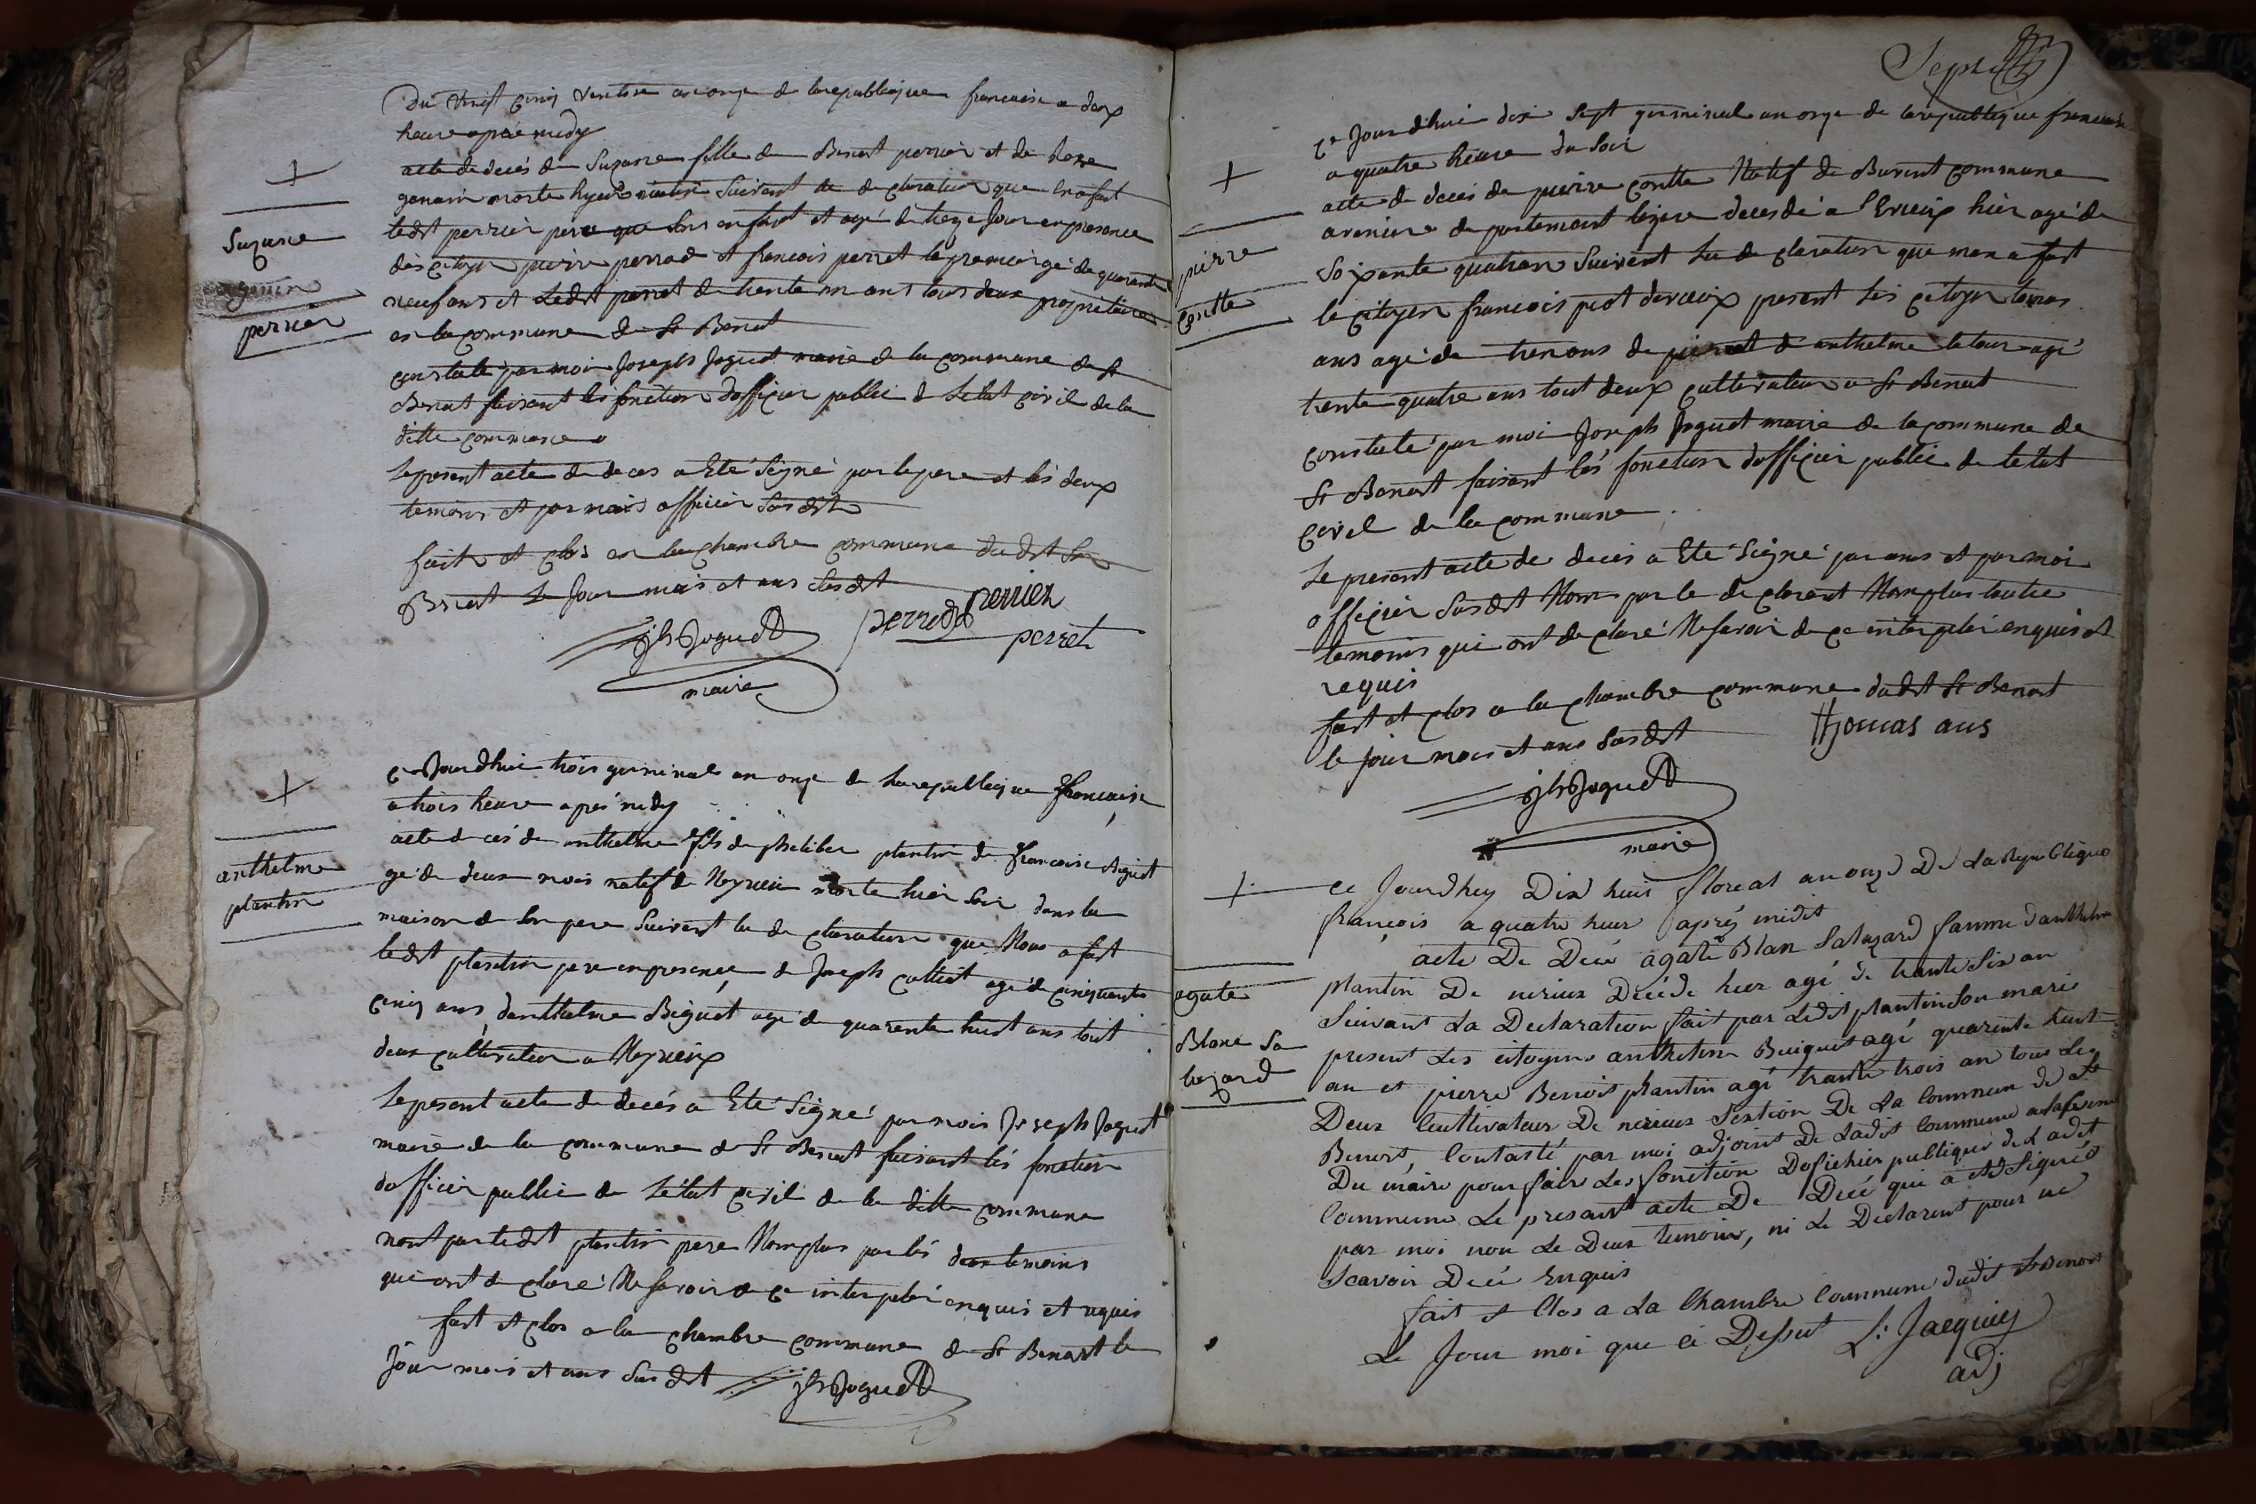 Du vingt cinq ventose an onze de la republique francaise a deux
heure apré midy
acte de decés de Suzanne fille de Benoit perrier et de Rose
genain morte hyer suivant la declaration que en a fait
ledit perrier pere que son enfant et agé de treze Jour en presence
des citoyen pierre perrod et francois perret le premier gé de quarante
neuf ans et ledit perret de trente un ans tous deux proprietaire
en la commune de St Benoit
constaté par moi Joseph Joguet maire de la commune de St
Benoit faisant les fonction dofficier public de Letat civil de la
ditte commune
Le present acte de deces a Eté Signé par le pere et lés deux
temoins et par mois officier Susdit
fait et clos en la chambre commune dudit St
Benoit Le Jour mois et ans Susdit
perrod perrier
jh Joguet
perret
maire
Suzanne
genin
perrier
ce Jourdhui trois germinal an onze de La republique francaise
a trois heure apré midy
acte de cés de anthelme fils de philiber plantin de francoise Biguet
gé de deux mois natif de Neyrieu morte hier soir dans la
maison de Son pere Suivant la declaration que Nous a fait
ledit plantin pere en presence de Joseph cultiet agé de cinquante
cinq ans danthelme Biguet agé de quarente huit ans tout
deux cultivateur a Neyrieux
Le present acte de decés a Eté Signé par mois Joseph Joguet
maire de la commune de St Benoit faisant lés fonction
dofficier public de Létat civil de la ditte commune
nont par ledit plantin pere Nomplus par lés deux temoins
qui ont declaré Ne savoir de ce interpelér enquis et requis
fait et clos a la chambre commune de St Benoit le
Jour mois et ans Susdit jh Joguet
anthelme
plantin
Sept
ce Jour dhui dix Sept germinal an onze de la republique francaise
a quatre heure du Soir
acte de deces de pierre contte Natif de Burint commune
aveniere departement lizere decedé a Evieux hier agé de
Soixante quatre ans Suivant La declaration que men a fait
le citoyen francois piot devieux present Lés citoyen tomas
ans agé de trenans de et de anthelme latour agé
trente quatre ans tout deux cultivateur a St Benoit
constaté par moi Joseph Joguet maire de la commune de
St Benoit faisant lés fonction dofficier public de letat
civil de la commune
Le present acte de decés a Eté Signé par ans et par moi
officier Susdit Nom par le declarant Nomplus lautre
temoins qui ont declaré Ne savoir de ce interpelér enquis et
requis
fait et clos a la chambre commune dudit St Benoit
le Jour mois et ans Susdit thomas ans
jh Joguet
maire
pierre
contte
ce Jourdhuy Dix huis floreal an onze De La Republique
françois a quatre heur aprés midit
acte De Decé agate Blan Salazard famme danthelme
plantin De nerieux Décéde hier agé de trante Six an
Suivant La Declaration fait par Ledit plantin Son marie
present Les citoyens anthelme Buiguet agé quarente huit
an et pierre Benoit plantin agé trante trois an tous Les
Deux Cultivateur De nerieux Section De La Commun de St
Benoit, Contasté par moi adjoint De Ladit Commune
Du maire pour fair Les fonction Dofichier publique de Ladit
Commune Le present acte De Decé qui a eté Signéé
par moi non Le Deux temoins, ni Le Declarent pour ne
Scavoir Decé Enquis
fait et Clos a La Chambre Commune dudit St Benoit
Le Jour moi que Ci Dessut L: Jacquiey
adj
agate
Blanc Sa
lazard